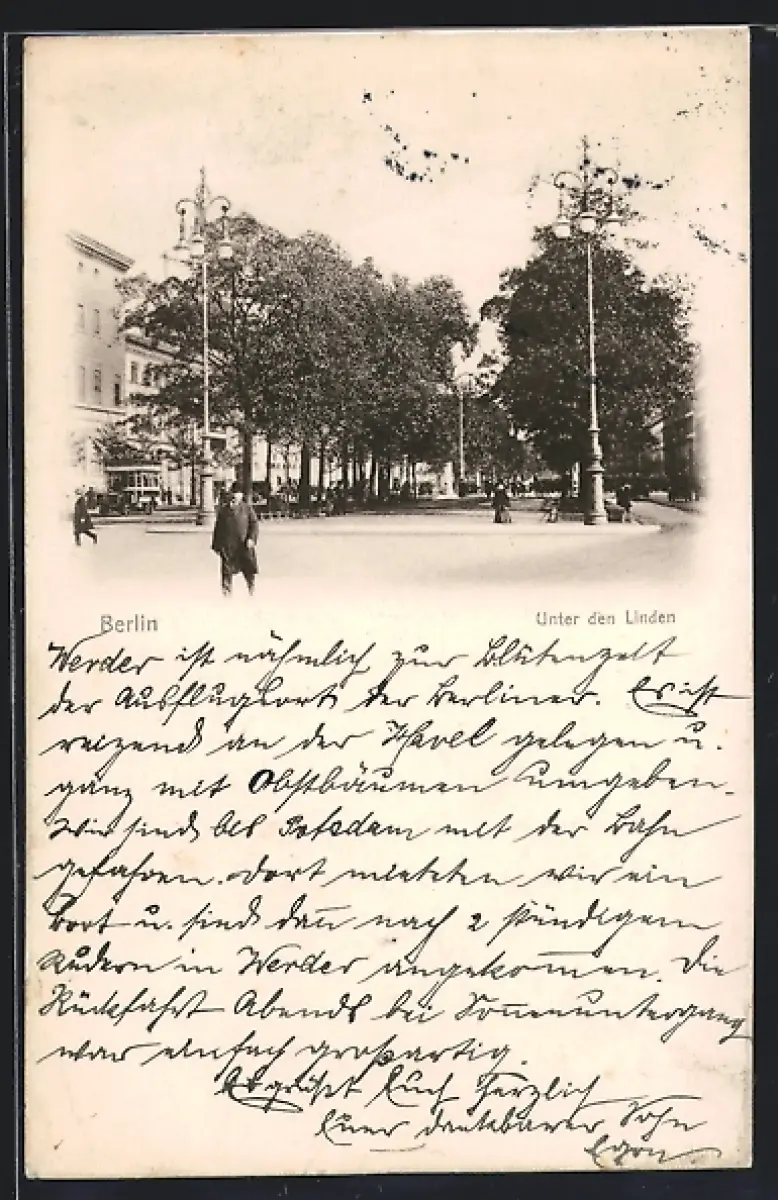 Berlin
Unter den Linden
Werder ist nähmlich zur Blütenzeit
der Ausflugsort der Berliner. Es ist
reizend an der Havel gelegen u.
ganz mit Obstbäumen umgeben.
Wir sind bis Potsdam mit der Bahn
gefahren. Dort mieteten wir ein
Boot u. sind dann nach 2 stündigem
Rudern in Werder angekommen. Die
Rückfahrt Abends bei Sonnenuntergang
war einfach großartig.
Es grüßt Euch herzlich
Euer dankbarer Sohn
Egon